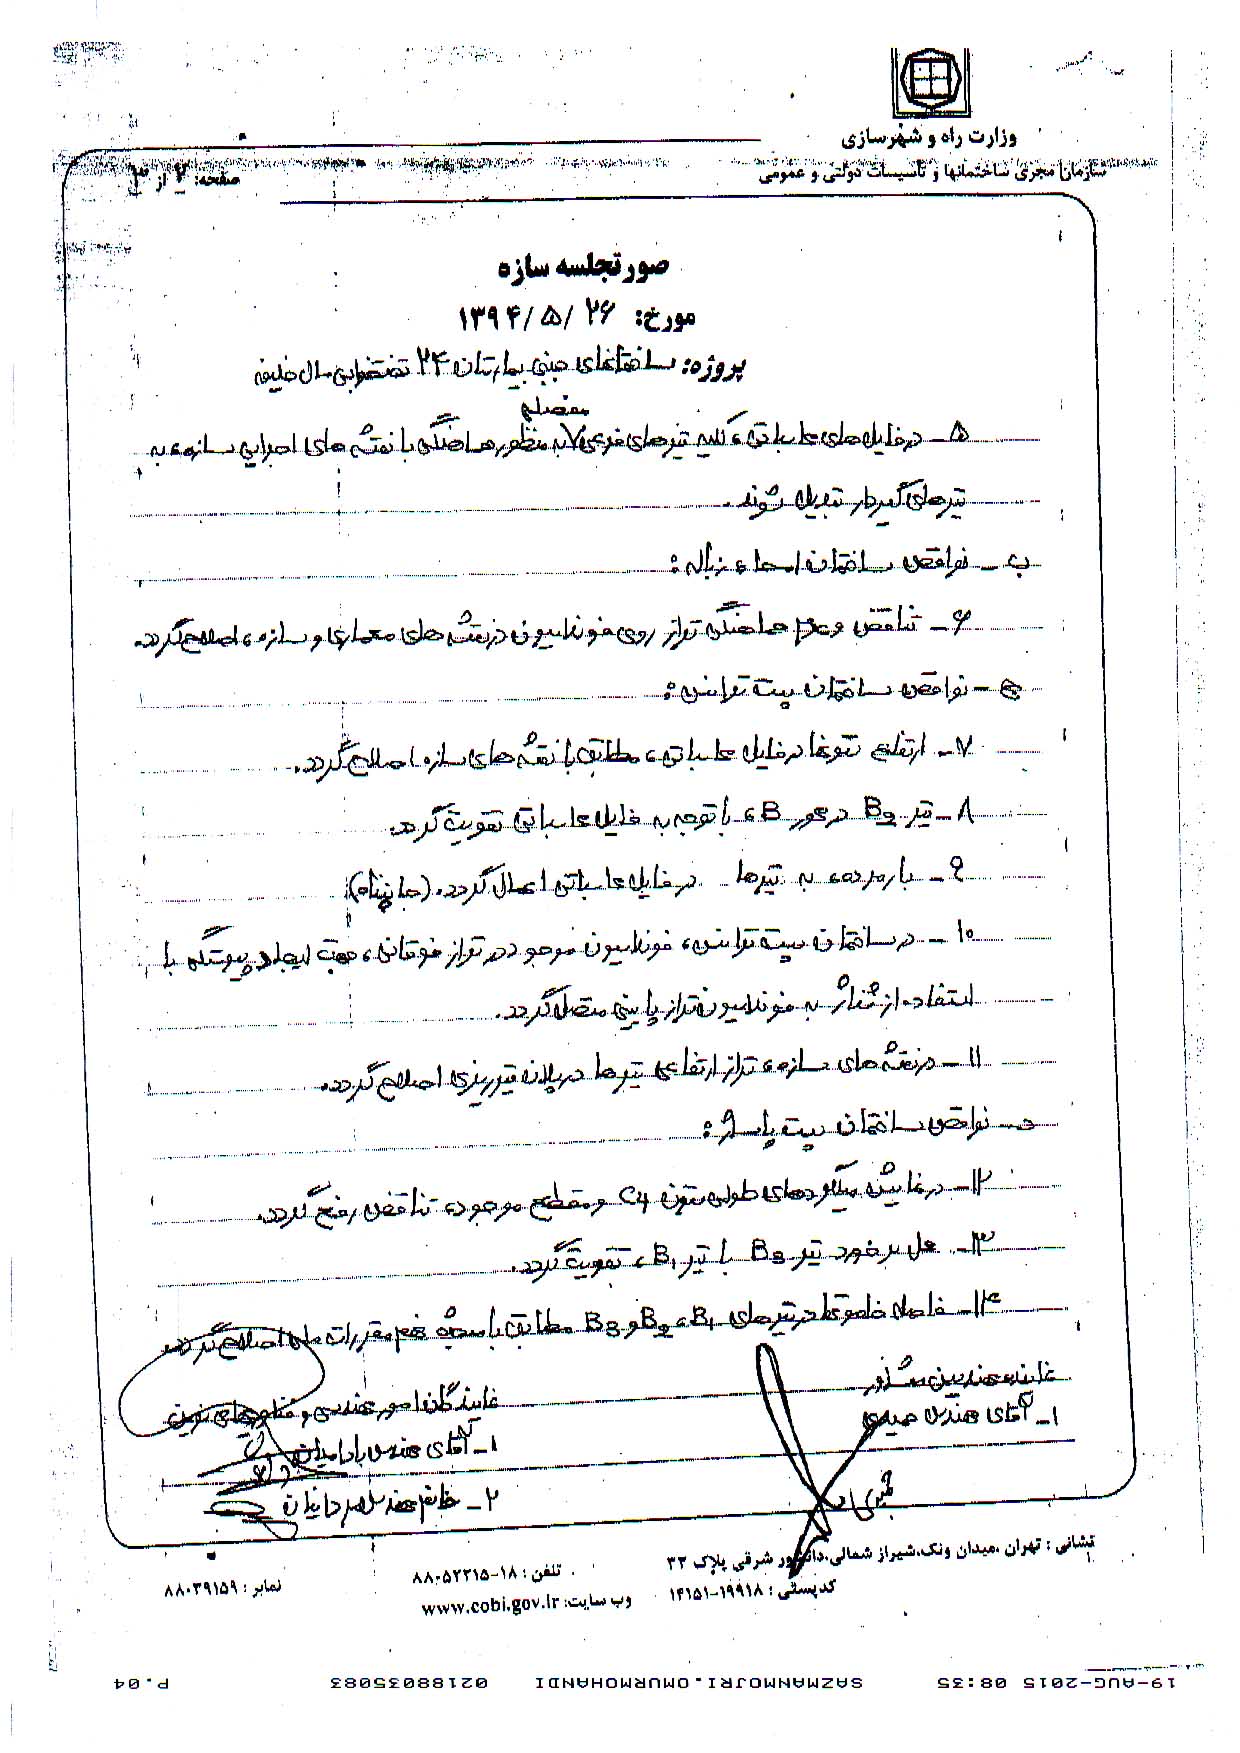 وزارت راه و شهرسازی
سازمان مجری ساختمانها و تأسیسات دولتی و عمومی
صفحه: ۲ از ۳
صورتجلسه سازه
مورخ: ۱۳۹۴/۵/۲۶
پروژه: ساختمانهای جنبی بیمارستان ۲۴ تختخوابی سال خلیفه
۵- در فایل های محاسباتی، کلیه تیرهای فرعی مفصلی به منظور هماهنگی با نقشه های اجرایی سازه، به
تیرهای گیردار تبدیل شوند.
ب- نواقص ساختمان امحاء زباله:
۶- تناقض و عدم هماهنگی تراز روی فونداسیون در نقشه های معماری و سازه، اصلاح گردد.
ج- نواقص ساختمان پست ترانس:
۷- ارتفاع ستونها در فایل محاسباتی، مطابق با نقشه های سازه اصلاح گردد.
۸- تیر B2 در محور B، با توجه به فایل محاسباتی تقویت گردد.
۹- بار مرده، به تیرها در فایل محاسباتی اعمال گردد. (جانپناه)
۱۰- در ساختمان پست ترانس، فونداسیون موجود در تراز فوقانی، جهت ایجاد پیوستگی با
استفاده از شناژ به فونداسیون تراز پایینی متصل گردد.
۱۱- در نقشه های سازه، تراز ارتفاعی تیرها در پلان تیرریزی اصلاح گردد.
د- نواقص ساختمان پست پاساژ:
۱۲- در نمایش میلگردهای طولی ستون C4 و مقطع موجود، تناقض رفع گردد.
۱۳- محل برخورد تیر B3 با تیر B1، تقویت گردد.
۱۴- فاصله خاموتها در تیرهای B1، B2 و B3 مطابق با مبحث نهم مقررات ملی اصلاح گردد.
نماینده مهندسین مشاور
۱- آقای مهندس حیدری
نمایندگان امور مهندسی و فناوریهای نوین
۱- آقای مهندس بادامیان
۲- خانم مهندس
نشانی: تهران، میدان ونک، شیراز شمالی، دانشور شرقی پلاک ۲۲
کدپستی: ۱۹۹۱۸-۱۴۱۵۱
تلفن: ۱۸-۸۸۰۵۲۲۱۵
وب سایت: www.cobi.gov.ir
نمابر: ۸۸۰۳۹۱۵۹
19-AUG-2015 08:35 SAZMANMOJRI.OMURMOHANDI 02188035083 P.04